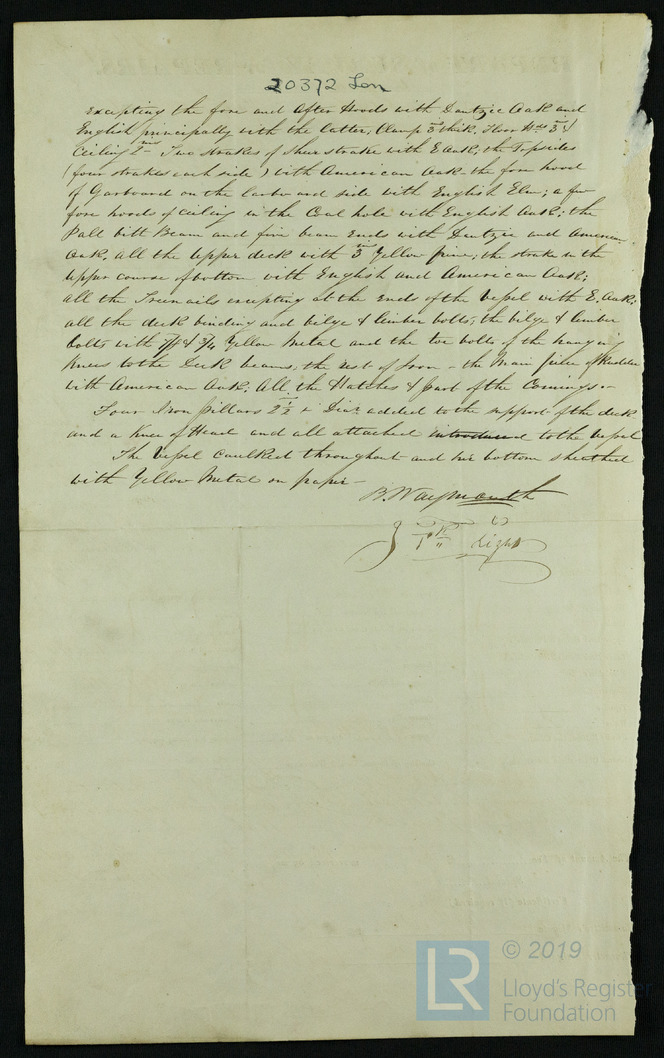 20372 Lon
excepting the fore and after Hoods with Dantzic Oak and
English principally with the latter, Clamp 3 in thick, Floor Hds 3 in &
Ceiling 2 in Two Strakes of Sheerstrake with E Oak, the Topsides
(four strakes each side) with American Oak. the fore hood
of Garboard on the larboard side with English Elm; a few
fore hoods of Ceiling in the Coal hole with English Oak; the
Pall bitt Beam and five beam Ends with Dantzic and American
Oak, all the Upper deck with 3 in Yellow pine; the strake in the
upper course of bottom with English and American Oak;
all the Treenails excepting at the Ends of the Vessel with E. Oak;
all the deck binding and bilge & limber bolts; the bilge & limber
bolts with 7/8 & 3/4 Yellow Metal and the toe bolts of the hanging
Knees to the Deck beams, the rest of Iron - the Main piece of Rudder
with American Oak. All the Hatches & part of the Comings.
Four Iron Pillars 2 1/2 in Diar. added to the support of the deck
and a Knee of Head and all attached introduced to the Vessel
The Vessel Caulked throughout and her bottom sheathed
with Yellow Metal on paper -
B. Waymouth
© 2019
LR
Lloyd's Register
Foundation